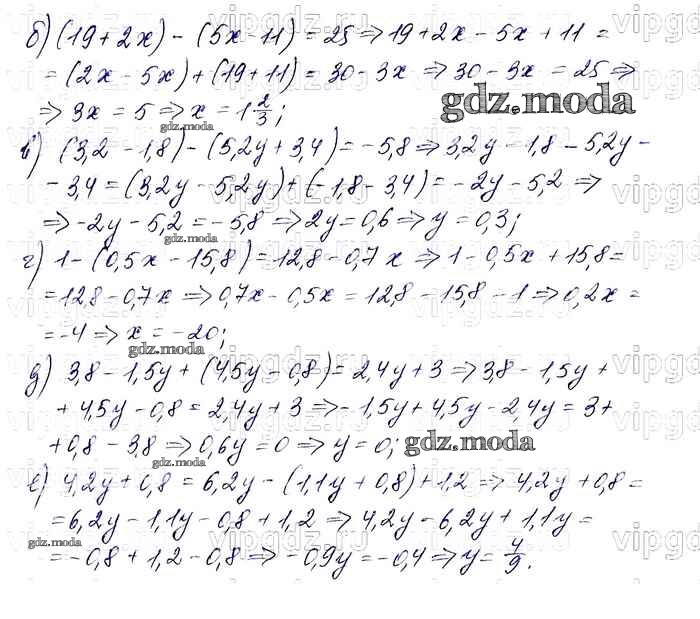 б) (19 + 2x) - (5x - 11) = 25 ⇒ 19 + 2x - 5x + 11 =
= (2x - 5x) + (19 + 11) = 30 - 3x ⇒ 30 - 3x = 25 ⇒
⇒ 3x = 5 ⇒ x = 1 2/3;
в) (3,2 - 1,8) - (5,2y + 3,4) = -5,8 ⇒ 3,2y - 1,8 - 5,2y -
- 3,4 = (3,2y - 5,2y) + (-1,8 - 3,4) = -2y - 5,2 ⇒
⇒ -2y - 5,2 = -5,8 ⇒ 2y = 0,6 ⇒ y = 0,3;
г) 1 - (0,5x - 15,8) = 12,8 - 0,7x ⇒ 1 - 0,5x + 15,8 =
= 12,8 - 0,7x ⇒ 0,7x - 0,5x = 12,8 - 15,8 - 1 ⇒ 0,2x =
= -4 ⇒ x = -20;
д) 3,8 - 1,5y + (4,5y - 0,8) = 2,4y + 3 ⇒ 3,8 - 1,5y +
+ 4,5y - 0,8 = 2,4y + 3 ⇒ -1,5y + 4,5y - 2,4y = 3 +
+ 0,8 - 3,8 ⇒ 0,6y = 0 ⇒ y = 0;
е) 4,2y + 0,8 = 6,2y - (1,1y + 0,8) + 1,2 ⇒ 4,2y + 0,8 =
= 6,2y - 1,1y - 0,8 + 1,2 ⇒ 4,2y - 6,2y + 1,1y =
= -0,8 + 1,2 - 0,8 ⇒ -0,9y = -0,4 ⇒ y = 4/9.
gdz.moda
gdz.moda
gdz.moda
gdz.moda
gdz.moda
gdz.moda
gdz.moda